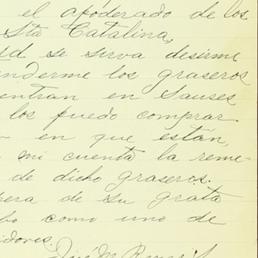 el apoderado de los
Sta Catalina,
d se serva desirme
nderme los graseros
entran en Sauses
los puedo comprar
en que están,
mi cuenta la reme-
de dicho graseros.
pera de su grata
bo como uno de
idores.
José M.